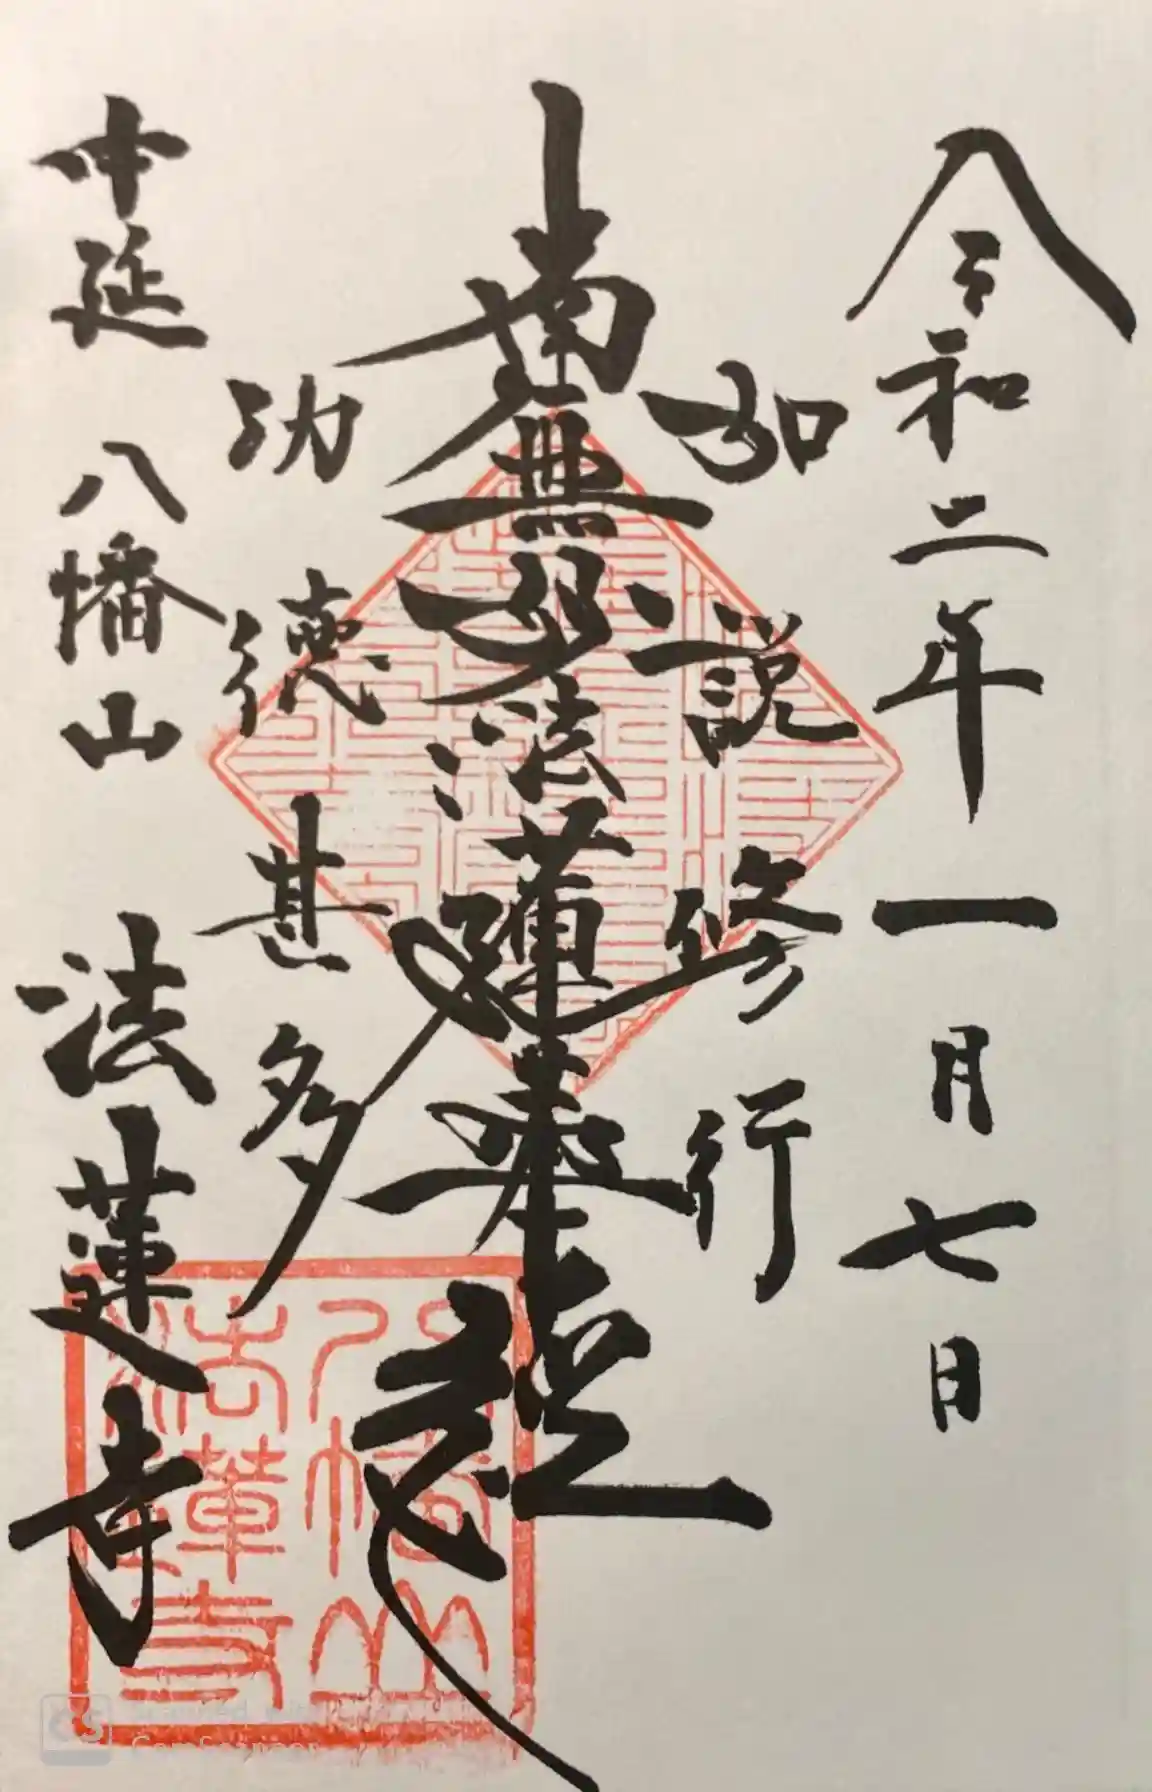 令和二年一月七日
如説修行
南無妙法蓮華経
功徳甚多
中延 八幡山 法蓮寺
八幡山
法蓮寺
CS
CamScanner